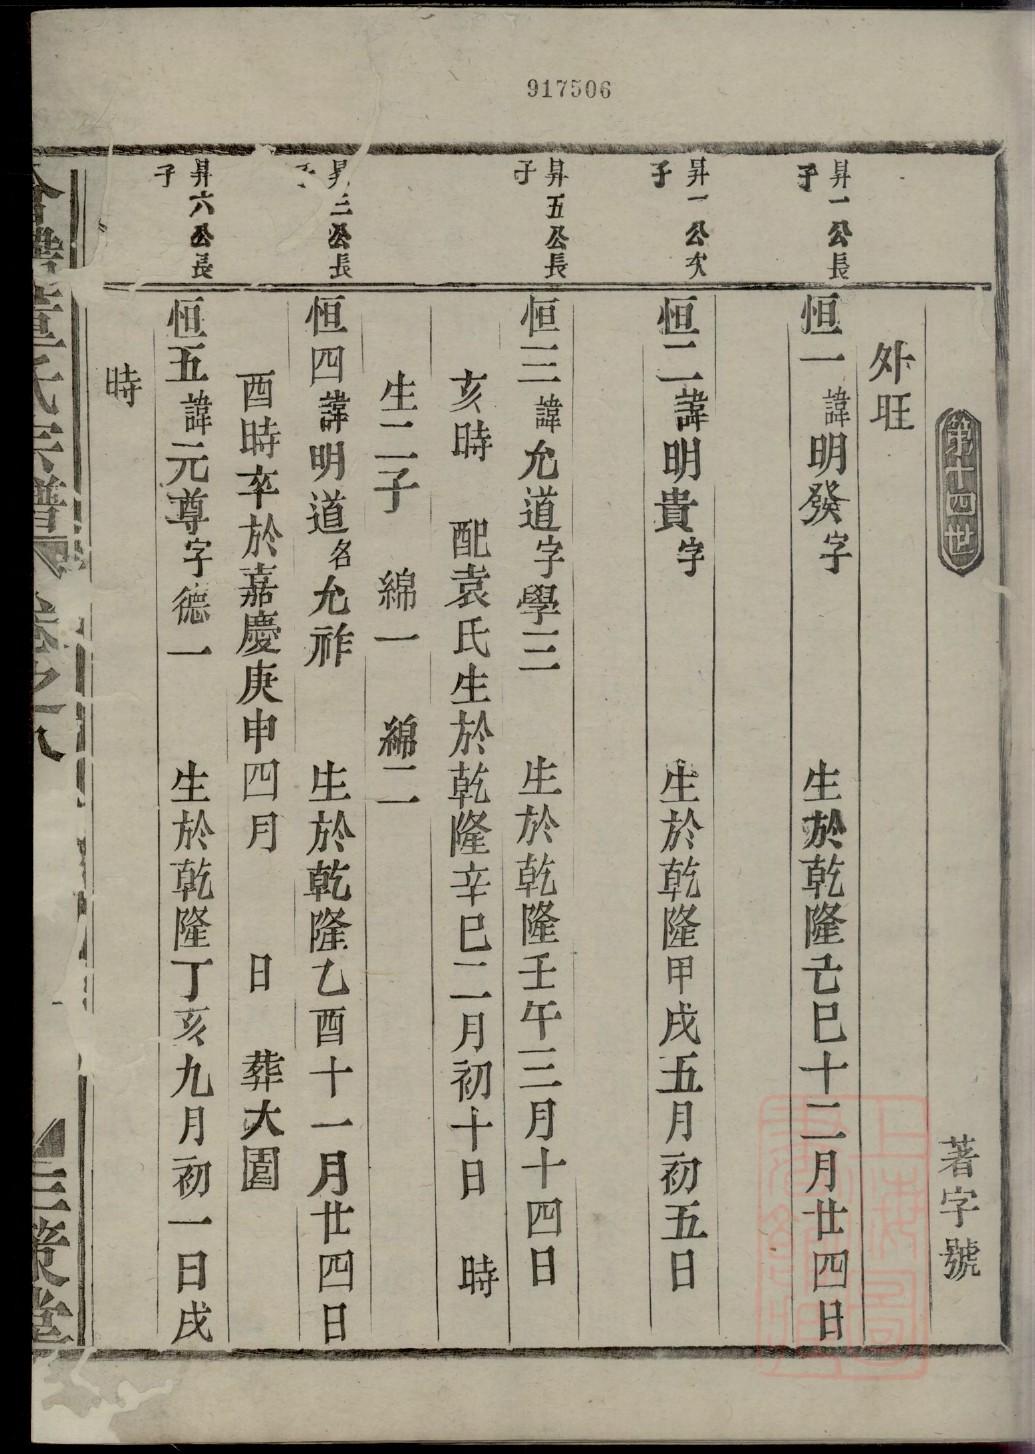 917506
第十四世
著字號
外旺
昇一公長子
恒一諱明發字 生於乾隆己巳十二月廿四日
昇一公次子
恒二諱明貴字 生於乾隆甲戌五月初五日
昇五公長子
恒三諱允道字學三 生於乾隆壬午三月十四日
亥時 配袁氏生於乾隆辛巳二月初十日 時
生二子 綿一 綿二
昇三公長子
恒四諱明道名允祚 生於乾隆乙酉十一月廿四日
酉時卒於嘉慶庚申四月 日 葬大園
昇六公長子
恒五諱元尊字德一 生於乾隆丁亥九月初一日戌
時
董氏宗譜 卷之八 三策堂